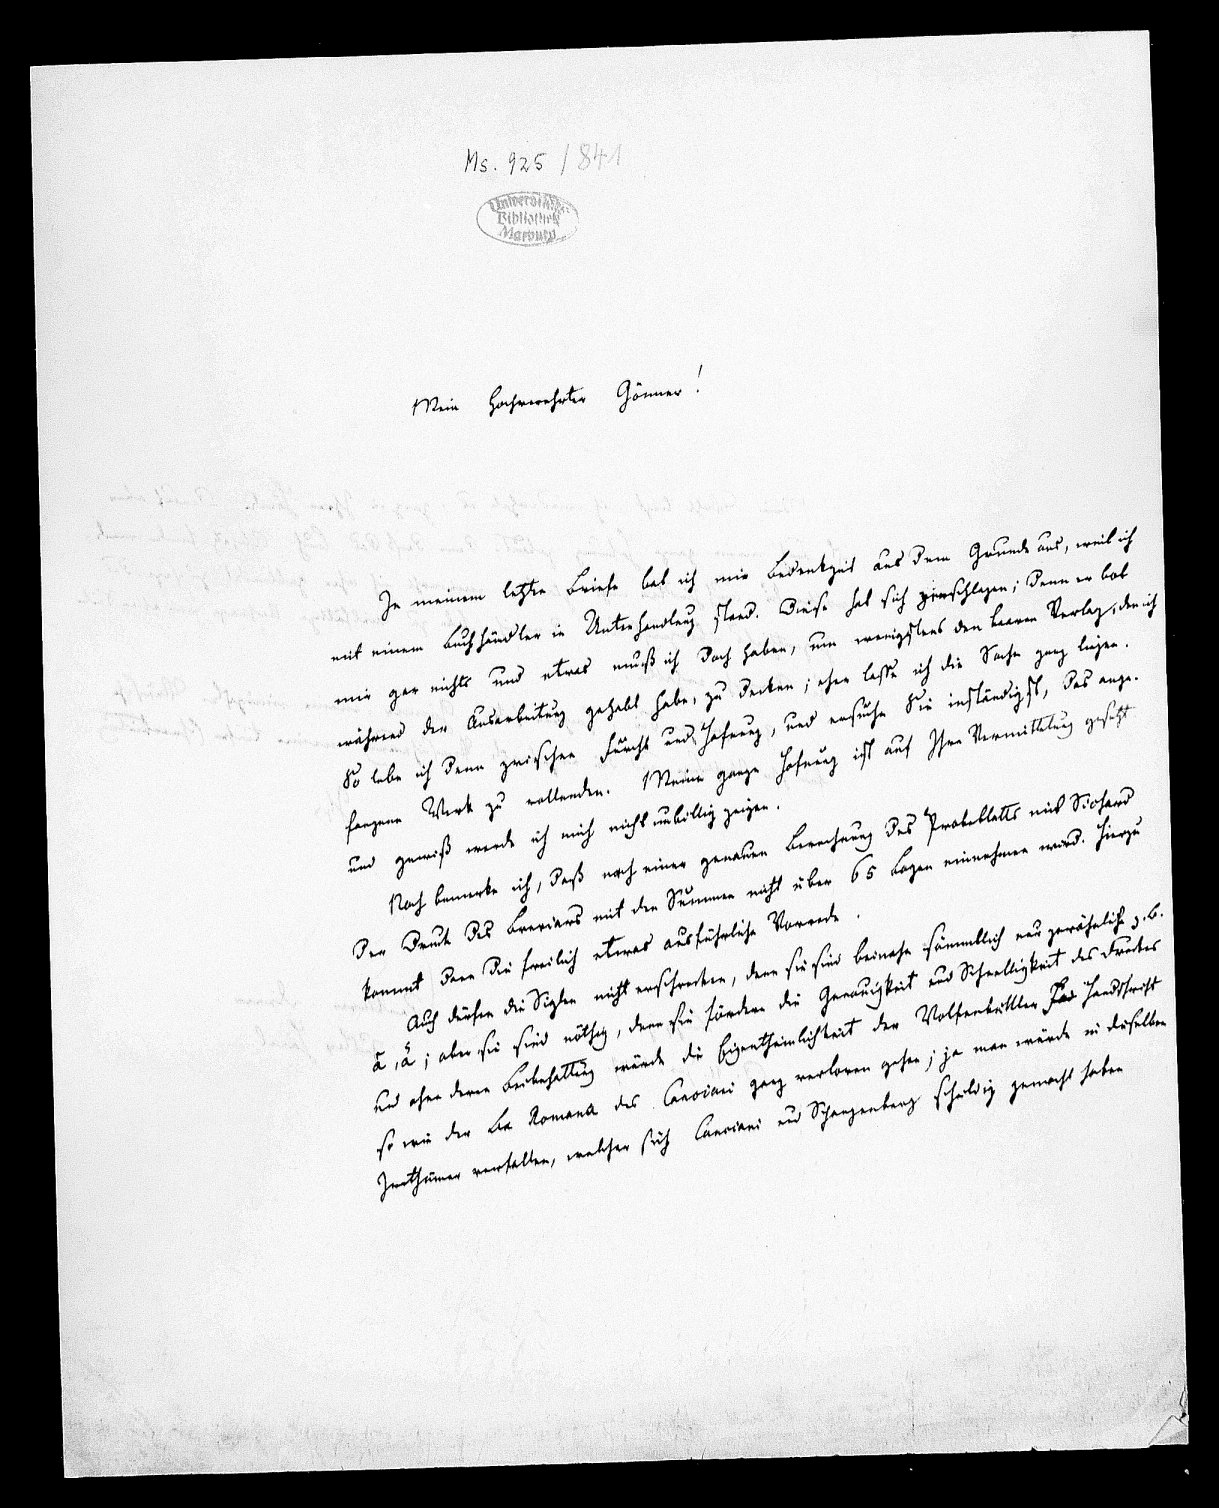 Ms. 925 / 841
Universitäts
Bibliothek
Marburg
Mein Hochverehrter Gönner!
In meinem letzten Briefe bat ich mir Bedenkzeit aus dem Grunde aus, weil ich
mit einem Buchhändler in Unterhandlung stand. Diese hat sich zerschlagen; denn er bot
mir gar nichts und etwas muß ich doch haben, um wenigstens den baaren Verlag, den ich
während der Ausarbeitung gehabt habe, zu decken; eher lasse ich die Sache ganz liegen.
So lebe ich denn zwischen Furcht und Hofnung, und ersuche Sie inständigst, das ange-
fangene Werk zu vollenden. Meine ganze Hofnung ist auf Ihre Vermittelung gesetzt
und gewiß werde ich mich nicht unbillig zeigen.
Noch bemerke ich, daß nach einer genauen Berechnung des Probeblatts mit Sichard
der Druck des Breviars mit den Summen nicht über 65 Bogen einnehmen wird. Hierzu
kommt dann die freilich etwas ausführliche Vorrede.
Auch dürfen die Siglen nicht erschrecken, denn sie sind beinahe sämmtlich nur gewöhnliche z. B.
ā, å; aber sie sind nöthig, denn sie fördern die Genauigkeit und Schnelligkeit des Druckes
und ohne deren Beibehaltung würde die Eigenthümlichkeit der Wolfenbüttler Handschrift
so wie der Lex Romana des Canciani ganz verloren gehen; ja man würde in dieselben
Irrthümer verfallen, welcher sich Canciani und Schangenberg schuldig gemacht haben